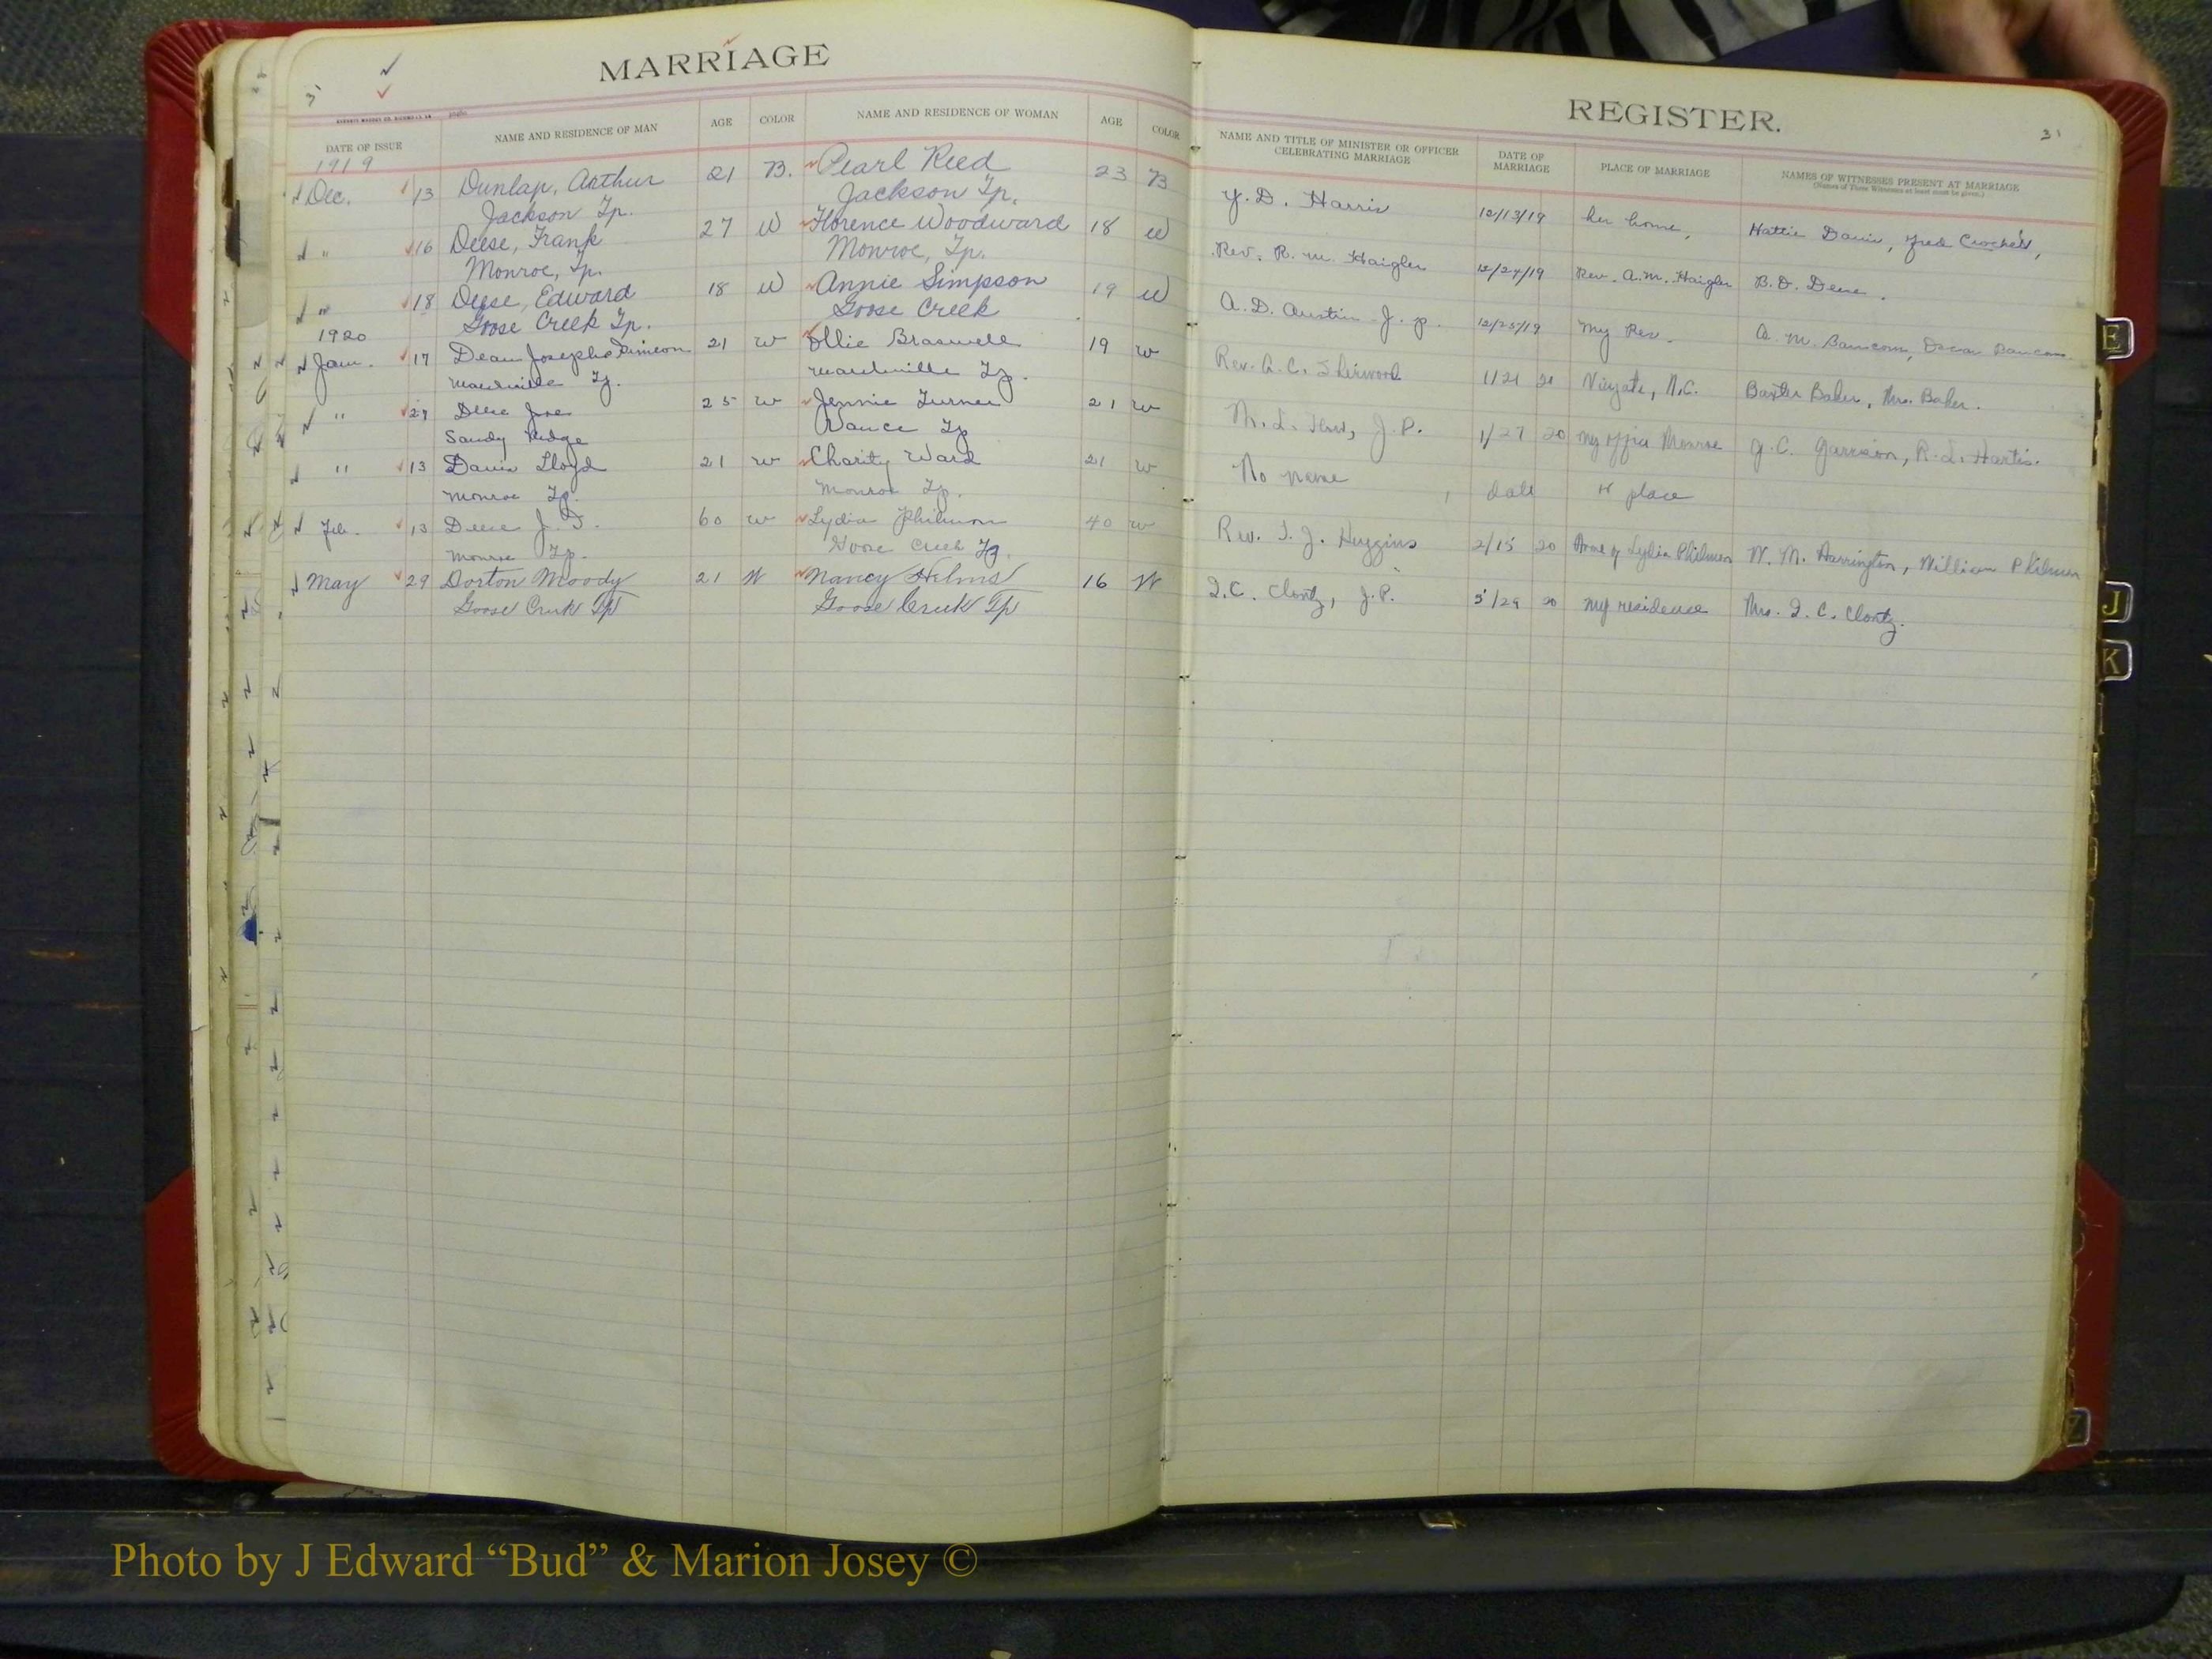 MARRIAGE
DATE OF ISSUE NAME AND RESIDENCE OF MAN AGE COLOR NAME AND RESIDENCE OF WOMAN AGE COLOR
1919
Dec. 13 Dunlap, Arthur 21 B. Pearl Reed 23 B
Jackson Tp. Jackson Tp.
" 16 Deese, Frank 27 W Florence Woodward 18 W
Monroe, Tp. Monroe, Tp.
" 18 Deese, Edward 18 W Annie Simpson 19 W
Goose Creek Tp. Goose Creek
1920
Jan. 17 Dean Josephs Simeon 21 W Ollie Braswell 19 W
Tp. Tp.
" 27 Deese Joe 25 W Jennie Turner 21 W
Sandy Ridge Vance Tp
" 13 Davis Lloyd 21 W Charity Ward 21 W
Monroe Tp. Monroe Tp.
Feb. 13 Deese J. 60 W Lydia Philmon 40 W
Monroe Tp. Goose Creek Tp.
May 29 Dorton Moody 21 W Nancy Helms 16 W
Goose Creek Tp Goose Creek Tp
REGISTER.
NAME AND TITLE OF MINISTER OR OFFICER
CELEBRATING MARRIAGE
DATE OF
MARRIAGE
PLACE OF MARRIAGE
NAMES OF WITNESSES PRESENT AT MARRIAGE
(Names of Three Witnesses at least must be given.)
Y. D. Harris 12/13/19 her home, Hattie Davis, Fred Crockett,
Rev. R. M. Haigler 12/24/19 Rev. A.M. Haigler B. D. Deese.
A. D. Austin J. P. 12/25/19 My Res. A. M. Baucom, Oscar Baucom
Rev. A. C. Sherwood 1/21 20 N.C. Baxter Baker, Mrs. Baker.
M. L. J.P. 1/27 20 My office Monroe G. C. Garrison, R. L. Hartis.
No name, date or place
Rev. T. J. Huggins 2/15 20 Home of Lydia Philmon W. M. Harrington, William Philmon
I. C. Clontz, J.P. 5/29 20 My residence Mrs. I. C. Clontz.
E
J
K
Z
Photo by J Edward “Bud” & Marion Josey ©